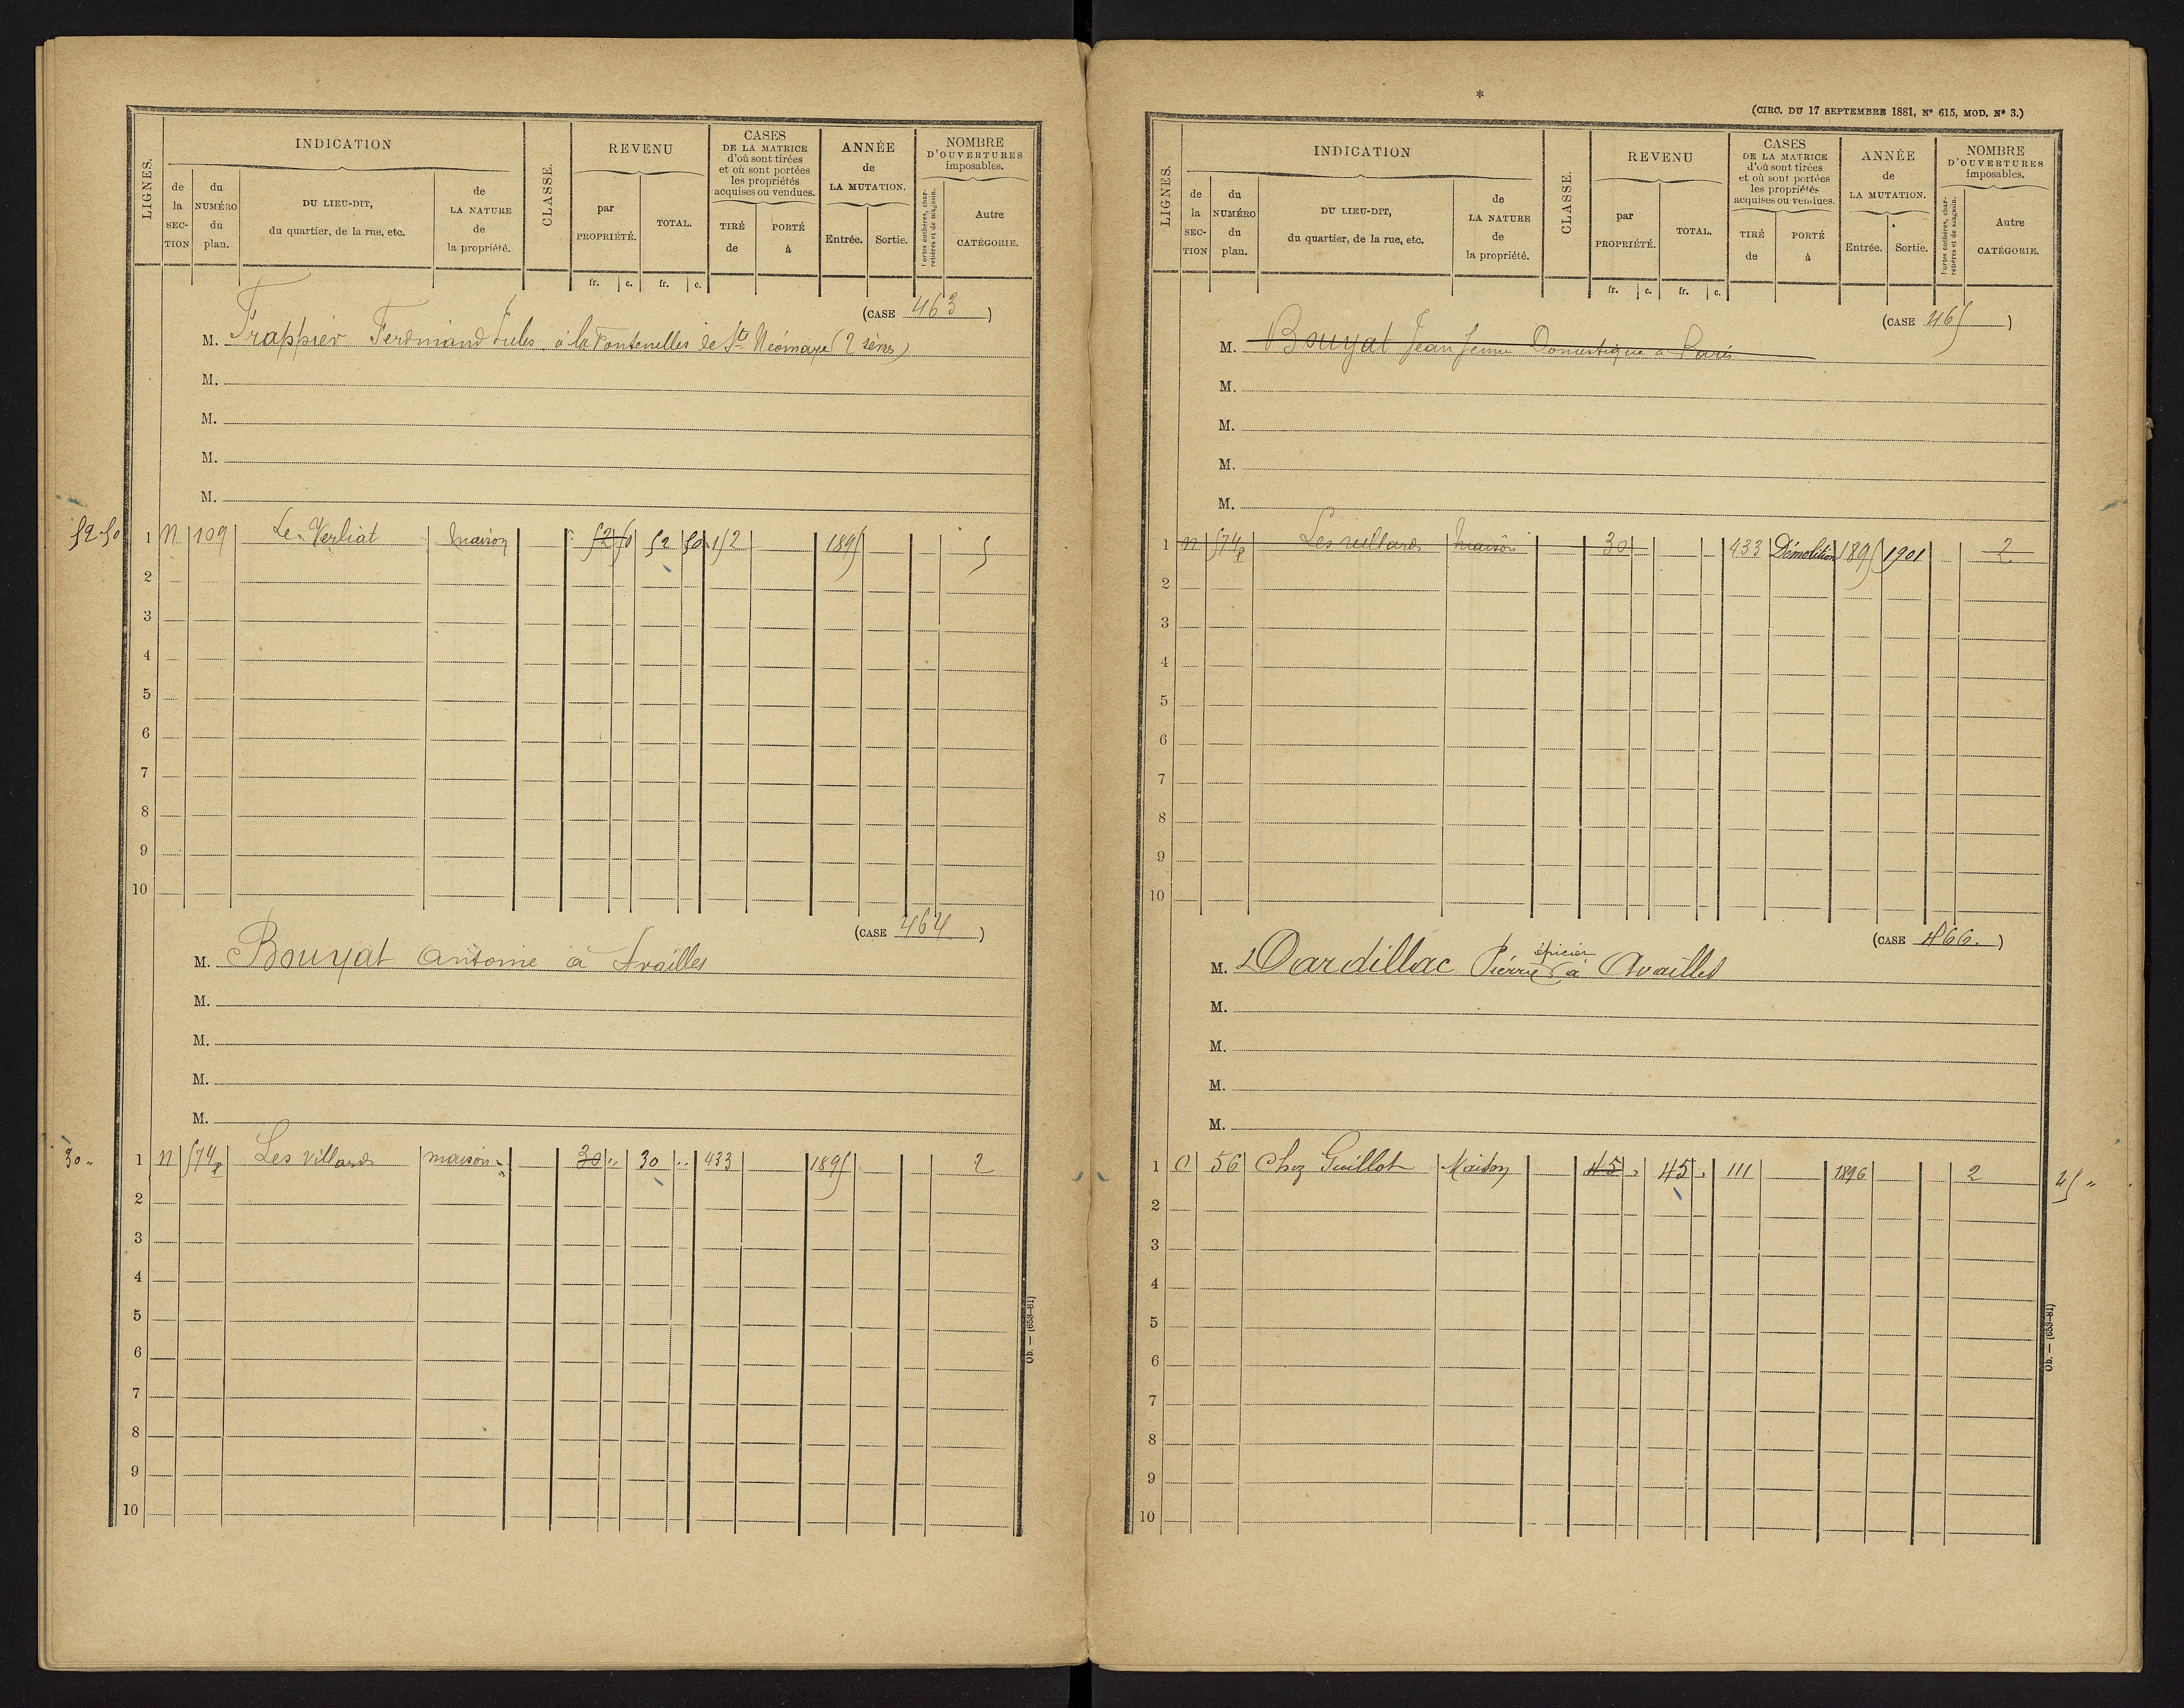 INDICATION
REVENU
CASES
DE LA MATRICE
d'où sont tirées
et où sont portées
les propriétés
acquises ou vendues.
ANNÉE
de
LA MUTATION.
NOMBRE
D'OUVERTURES
imposables.
LIGNES.
de
la
SEC-
TION
du
NUMÉRO
du
plan.
DU LIEU-DIT,
du quartier, de la rue, etc.
de
LA NATURE
de
la propriété.
CLASSE.
par
PROPRIÉTÉ.
TOTAL.
TIRÉ
de
PORTÉ
à
Entrée.
Sortie.
Portes cochères, char-
retières et de magasin.
Autre
CATÉGORIE.
fr. c. fr. c.
(CASE 463)
M. Frappier Ferdinand Jules à la Fontenelles de Ste Néomaye (2 sèvres)
M.
M.
M.
M.
52.50 1 N 109 Le Verliat maison 52 50 52 50 152 1895 5
2
3
4
5
6
7
8
9
10
(CASE 464.)
M. Bouyat Antoine à Availles
M.
M.
M.
M.
30 " 1 N 574p Les Villards maison 30 " 30 " 433 1895 2
2
3
4
5
6
7
8
9
10
Ob. — (653-81)
*
(CIRC. DU 17 SEPTEMBRE 1881, N° 615, MOD. N° 3.)
INDICATION
REVENU
CASES
DE LA MATRICE
d'où sont tirées
et où sont portées
les propriétés
acquises ou vendues.
ANNÉE
de
LA MUTATION.
NOMBRE
D'OUVERTURES
imposables.
LIGNES.
de
la
SEC-
TION
du
NUMÉRO
du
plan.
DU LIEU-DIT,
du quartier, de la rue, etc.
de
LA NATURE
de
la propriété.
CLASSE.
par
PROPRIÉTÉ.
TOTAL.
TIRÉ
de
PORTÉ
à
Entrée.
Sortie.
Portes cochères, char-
retières et de magasin.
Autre
CATÉGORIE.
fr. c. fr. c.
(CASE 465)
M. Bouyat Jean Jeune Domestique à Paris
M.
M.
M.
M.
1 N 574p Les villards maison 30 433 Démolition 1895 1901 2
2
3
4
5
6
7
8
9
10
(CASE 466.)
M. Dardillac Pierre épicier à Availles
M.
M.
M.
M.
1 O 56 Chez Guillot Maison 45 " 45 " 111 1896 2 45 "
2
3
4
5
6
7
8
9
10
Ob. — (653-81)